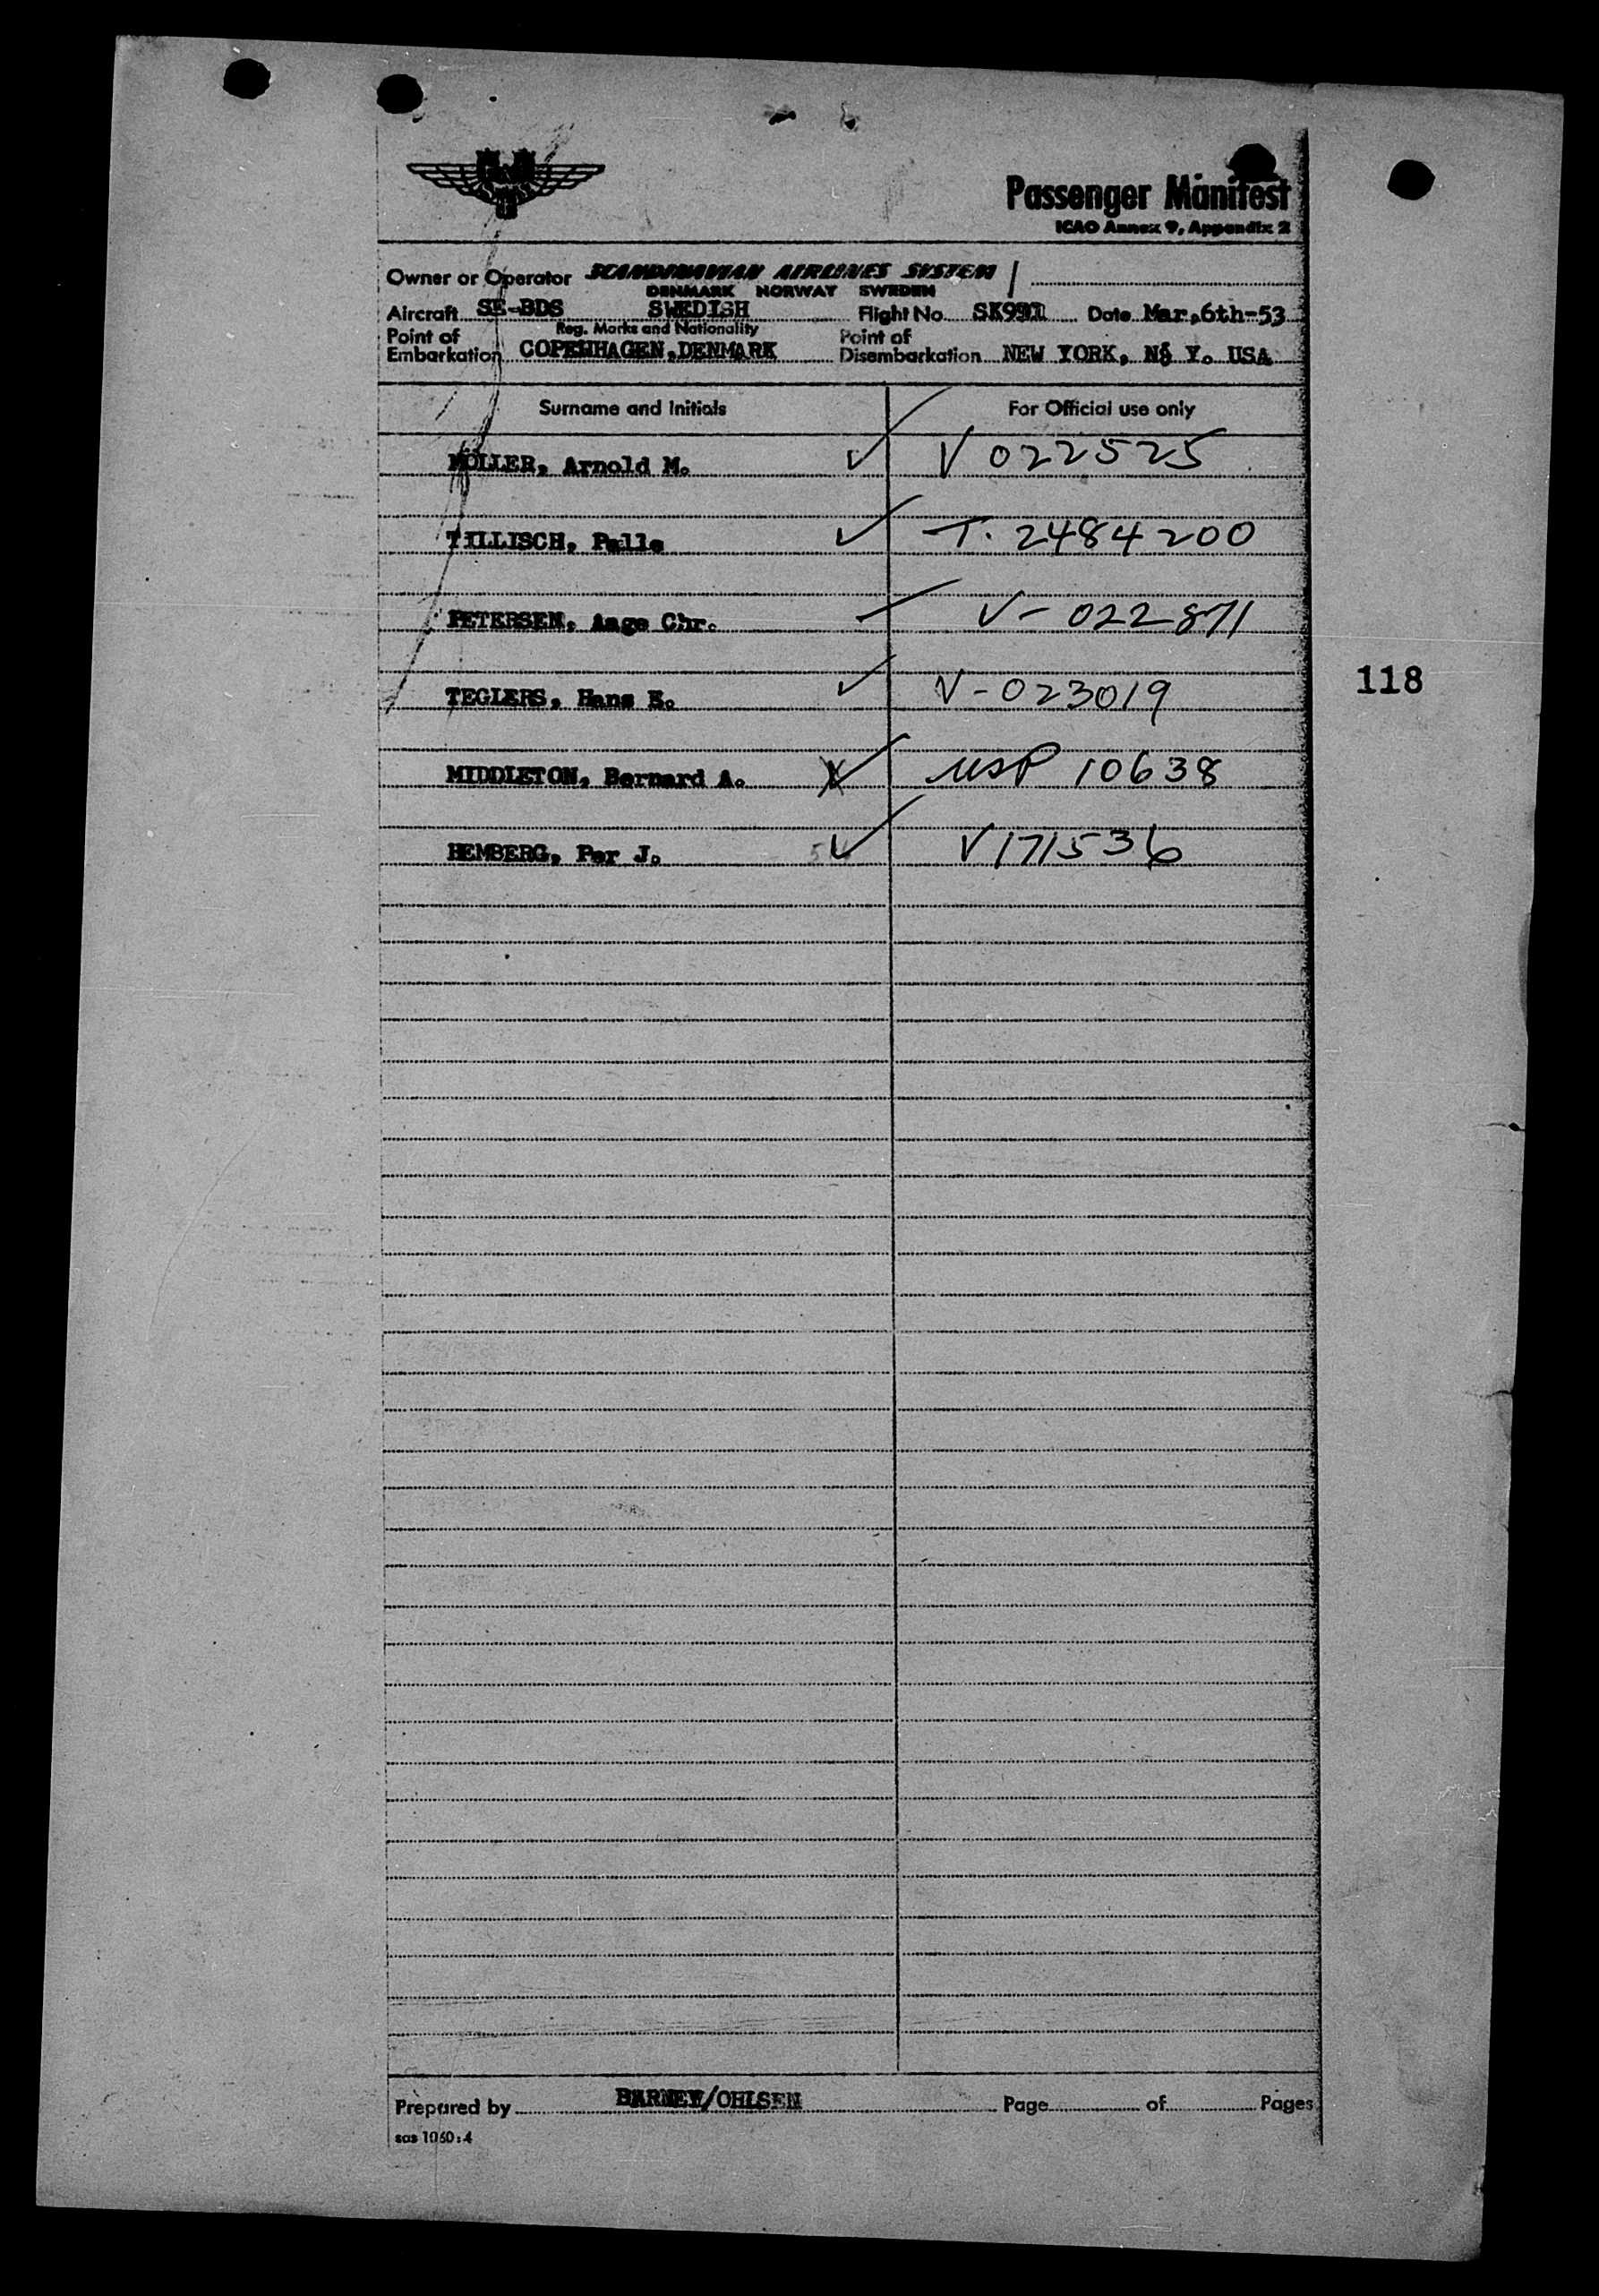 Passenger Manifest
ICAO Annex 9, Appendix 2
Owner or Operator SCANDINAVIAN AIRLINES SYSTEM
DENMARK NORWAY SWEDEN
Aircraft SE-BDS SWEDISH Flight No. Date Mar.6th-53
Reg. Marks and Nationality
Point of Embarkation COPENHAGEN, DENMARK Point of Disembarkation NEW YORK, N. Y. USA
Surname and Initials For Official use only
MÖLLER, Arnold M. V 022525
TILLISCH, Palle T. 2484200
PETERSEN, Aage Chr. V- 022871
TEGLERS, Hans E. V-023019
118
MIDDLETON, Bernard A. USP 10638
HEMBERG, Per J. V171536
Prepared by BARNEY/OHLSEN Page of Pages
sas 1060:4